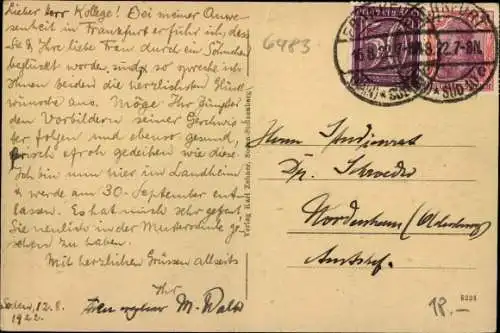 Lieber Herr Kollege! Bei meiner Anwe-
senheit in Frankfurt erfuhr ich, dass
Sie u. Ihre liebe Frau durch ein Söhnchen
beglückt worden sind, so spreche ich
Ihnen beiden die herzlichsten Glück-
wünsche aus. Möge Ihr Jüngster
den Vorbildern seiner Geschwis-
ter folgen und ebenso gesund,
frisch u. froh gedeihen wie diese.
Ich bin nun hier im Landheim
u. werde am 30. September ent-
lassen. Es hat mich sehr gefreut,
Sie neulich in der Musterschule ge-
sehen zu haben.
Mit herzlichen Grüssen allseits
Ihr
M. Wald
Soden, 12.8.
1922.
6483
22.7-8N.
Verlag Karl Zehner,
Herrn Studienrat
Dr. Schroeder
Nordenham (Oldenburg)
Amtshof.
18.-